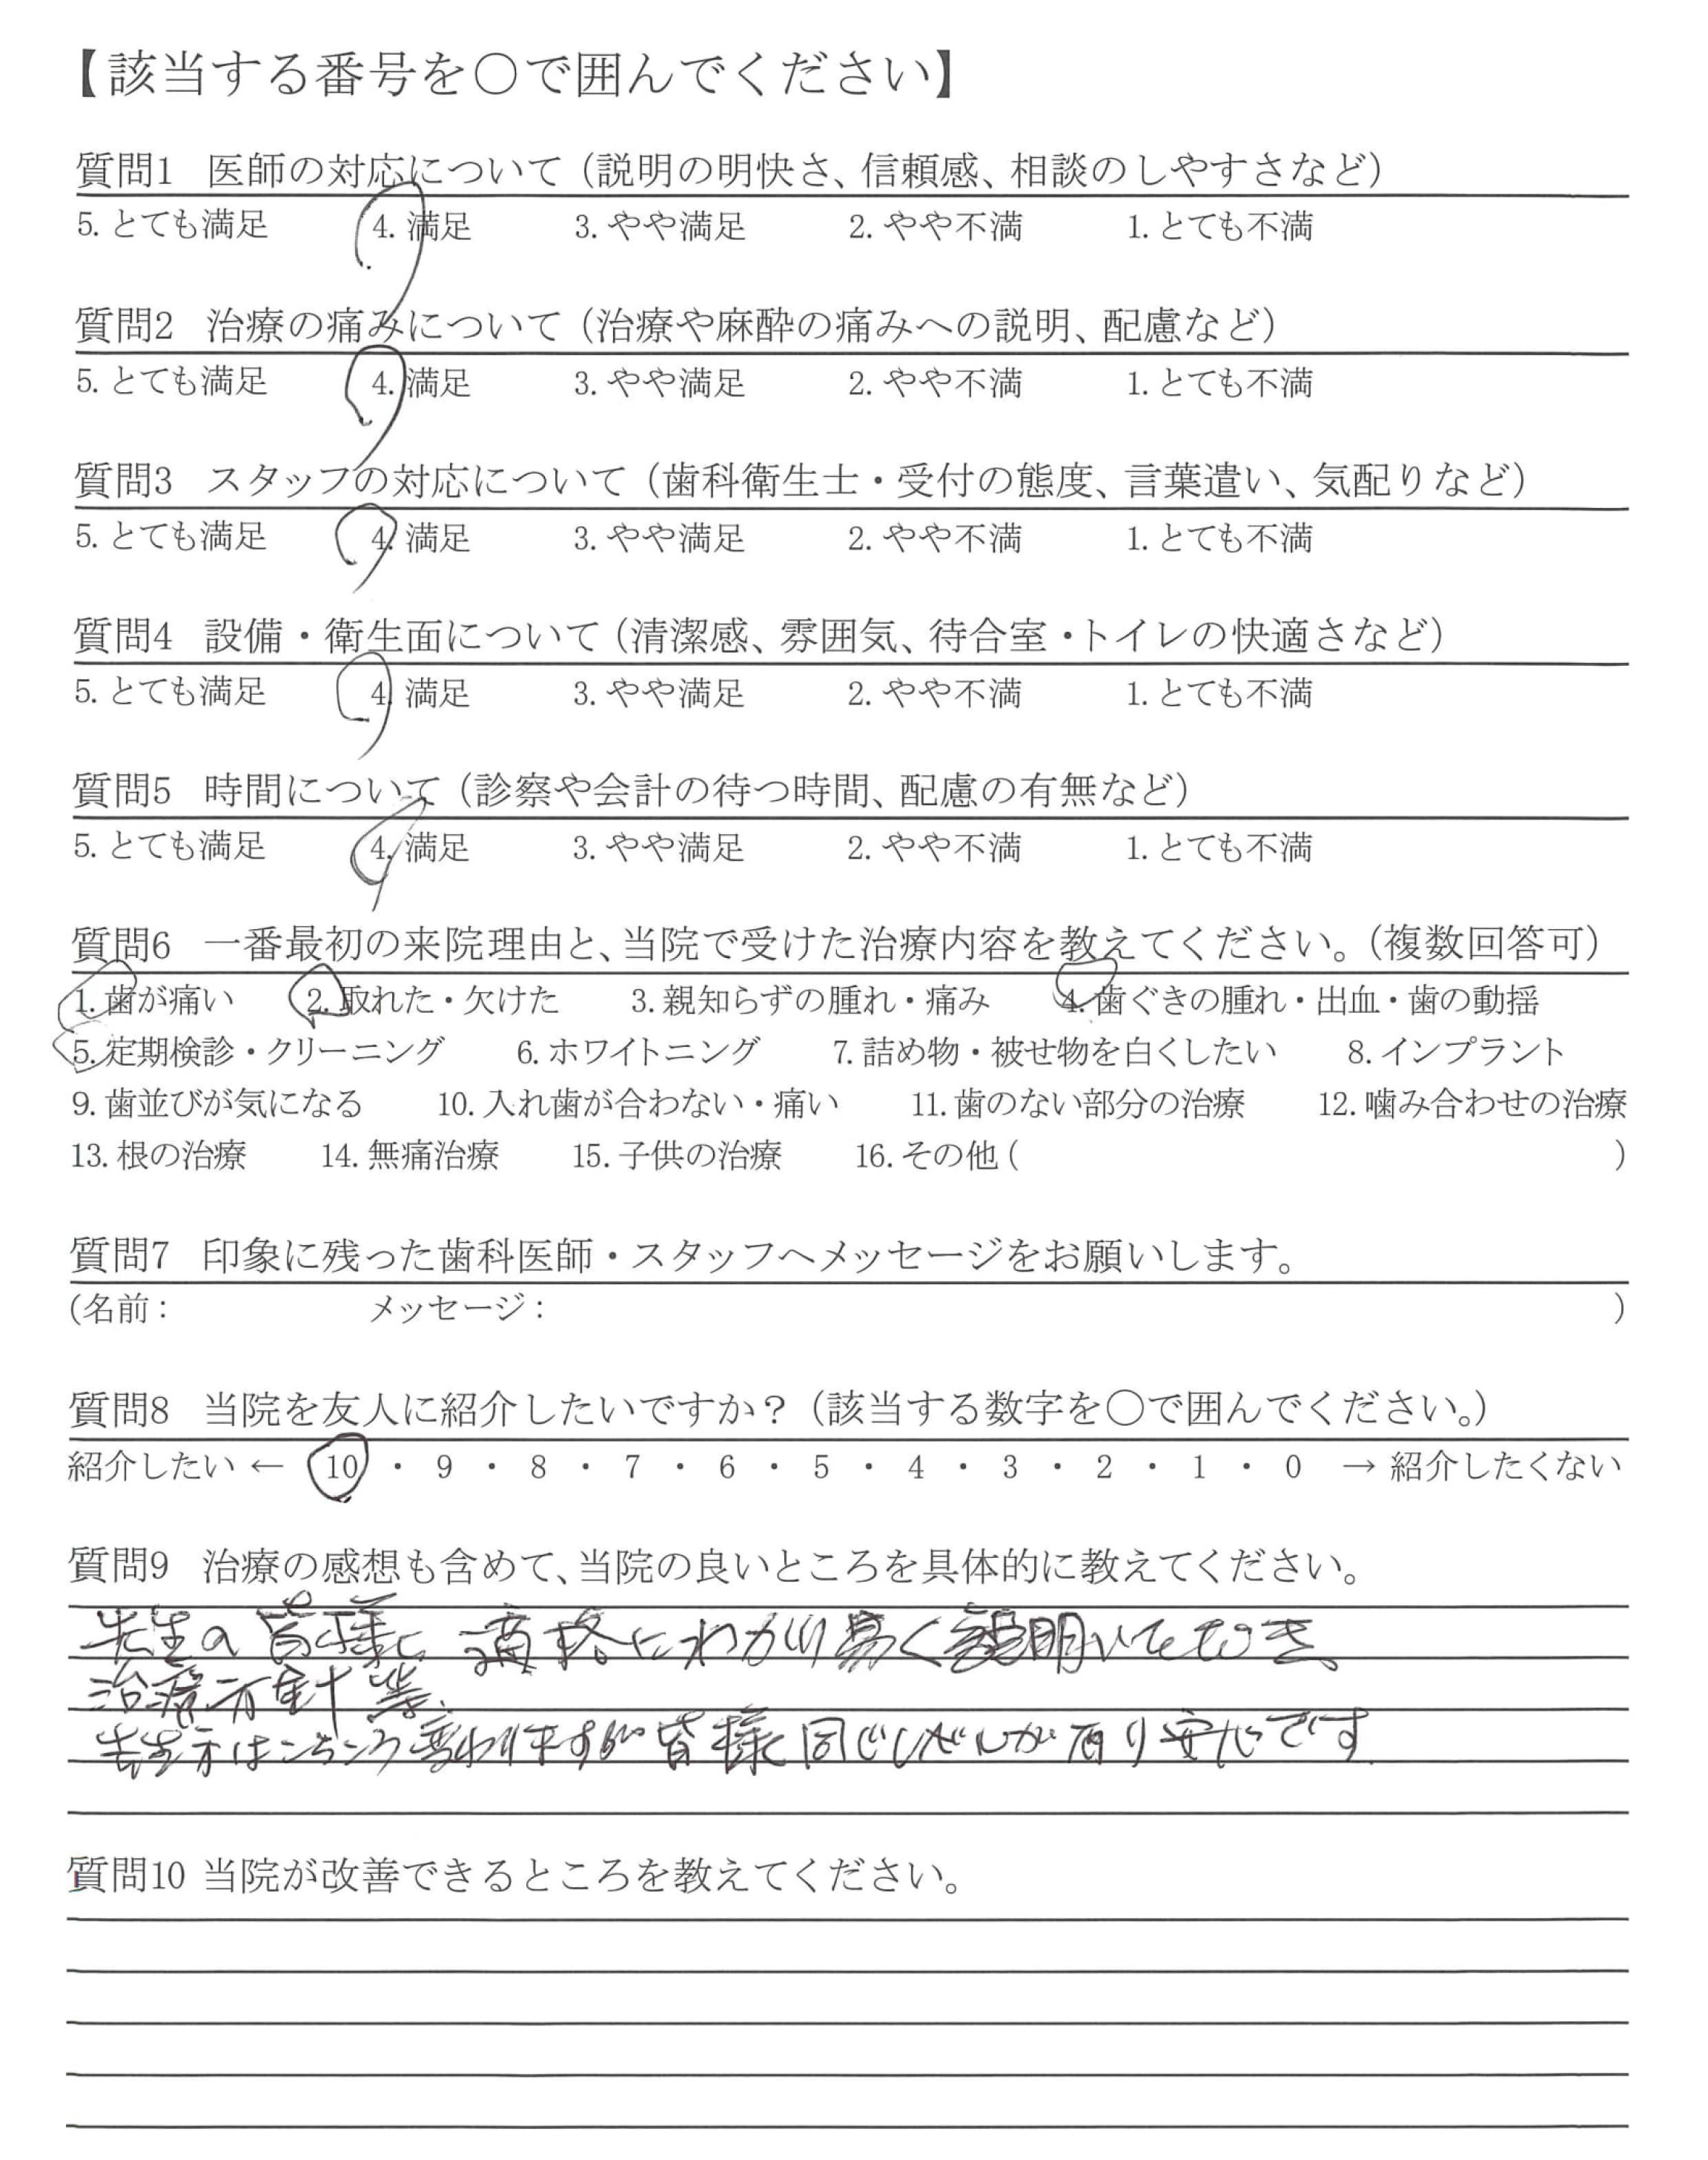 【該当する番号を○で囲んでください】
質問1 医師の対応について（説明の明快さ、信頼感、相談のしやすさなど）
5. とても満足 4. 満足 3. やや満足 2. やや不満 1. とても不満
質問2 治療の痛みについて（治療や麻酔の痛みへの説明、配慮など）
5. とても満足 4. 満足 3. やや満足 2. やや不満 1. とても不満
質問3 スタッフの対応について（歯科衛生士・受付の態度、言葉遣い、気配りなど）
5. とても満足 4. 満足 3. やや満足 2. やや不満 1. とても不満
質問4 設備・衛生面について（清潔感、雰囲気、待合室・トイレの快適さなど）
5. とても満足 4. 満足 3. やや満足 2. やや不満 1. とても不満
質問5 時間について（診察や会計の待つ時間、配慮の有無など）
5. とても満足 4. 満足 3. やや満足 2. やや不満 1. とても不満
質問6 一番最初の来院理由と、当院で受けた治療内容を教えてください。（複数回答可）
1. 歯が痛い 2. 取れた・欠けた 3. 親知らずの腫れ・痛み 4. 歯ぐきの腫れ・出血・歯の動揺
5. 定期検診・クリーニング 6. ホワイトニング 7. 詰め物・被せ物を白くしたい 8. インプラント
9. 歯並びが気になる 10. 入れ歯が合わない・痛い 11. 歯のない部分の治療 12. 噛み合わせの治療
13. 根の治療 14. 無痛治療 15. 子供の治療 16. その他 ( )
質問7 印象に残った歯科医師・スタッフへメッセージをお願いします。
(名前： メッセージ： )
質問8 当院を友人に紹介したいですか？（該当する数字を○で囲んでください。）
紹介したい ← 10 ・ 9 ・ 8 ・ 7 ・ 6 ・ 5 ・ 4 ・ 3 ・ 2 ・ 1 ・ 0 → 紹介したくない
質問9 治療の感想も含めて、当院の良いところを具体的に教えてください。
先生の皆様に 適格にわかり易く説明いただき、
治療方針等、
先生方はころころ変わりますが皆様同じ が有り安心です
質問10 当院が改善できるところを教えてください。